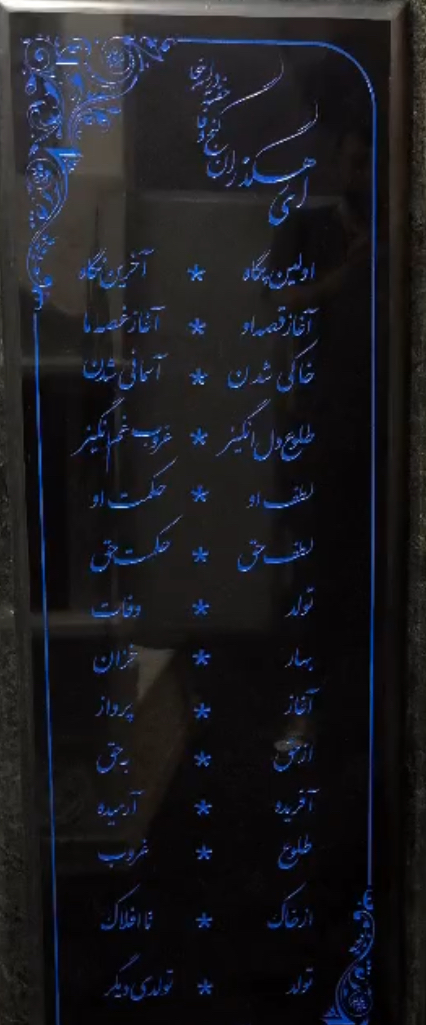 ای رهگذران
گنج وفا
خفته در اینجا
اولین پگاه * آخرین نگاه
آغاز قصه او * آغاز غصه ما
خاکی شدن * آسمانی شدن
طلوع دل انگیز * غروب غم انگیز
لطف او * حکمت او
لطف حق * حکمت حق
تولد * وفات
بهار * خزان
آغاز * پرواز
از حق * به حق
آفریده * آرمیده
طلوع * غروب
از خاک * تا افلاک
تولد * تولدی دیگر